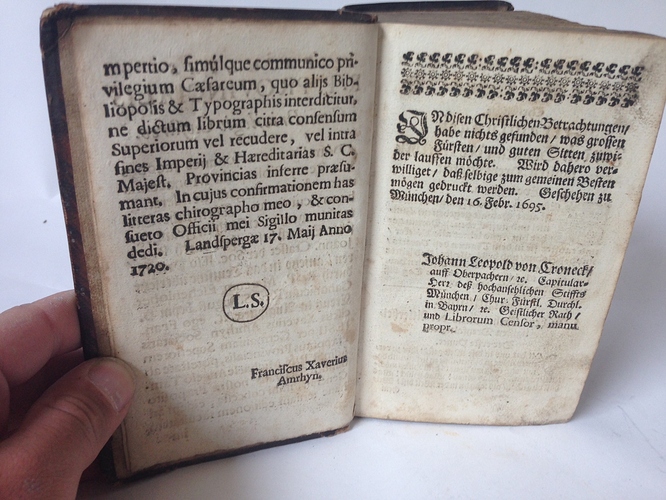 mpertio, simúlque communico pri-
vilegium Cæsareum, quo alijs Bib-
liopolis & Typographis interdicitur,
ne dictum librum citra consensum
Superiorum vel recudere, vel intra
fines Imperij & Hæreditarias S. C.
Majest. Provincias inferre præsu-
mant. In cujus confirmationem has
litteras chirographo meo, & con-
sueto Officii mei Sigillo munitas
dedi. Landspergæ 17. Maij Anno
1720.
L.S.
Franciscus Xaverius
Amrhyn.
IN disen Christlichen Betrachtungen/
habe nichts gefunden/ was grossen
Fürsten/ und guten Sitten zuwi-
der lauffen möchte. Wird dahero ver-
williget/ daß selbige zum gemeinen Besten
mögen gedruckt werden. Geschehen zu
München/ den 16. Febr. 1695.
Johann Leopold von Croneck/
auff Oberpachern/ ꝛc. Capitular-
Herr deß hochansehlichen Stiffts
München/ Chur-Fürstl. Durchl.
in Bayrn/ ꝛc. Geistlicher Rath/
und Librorum Censor, manu
propr.